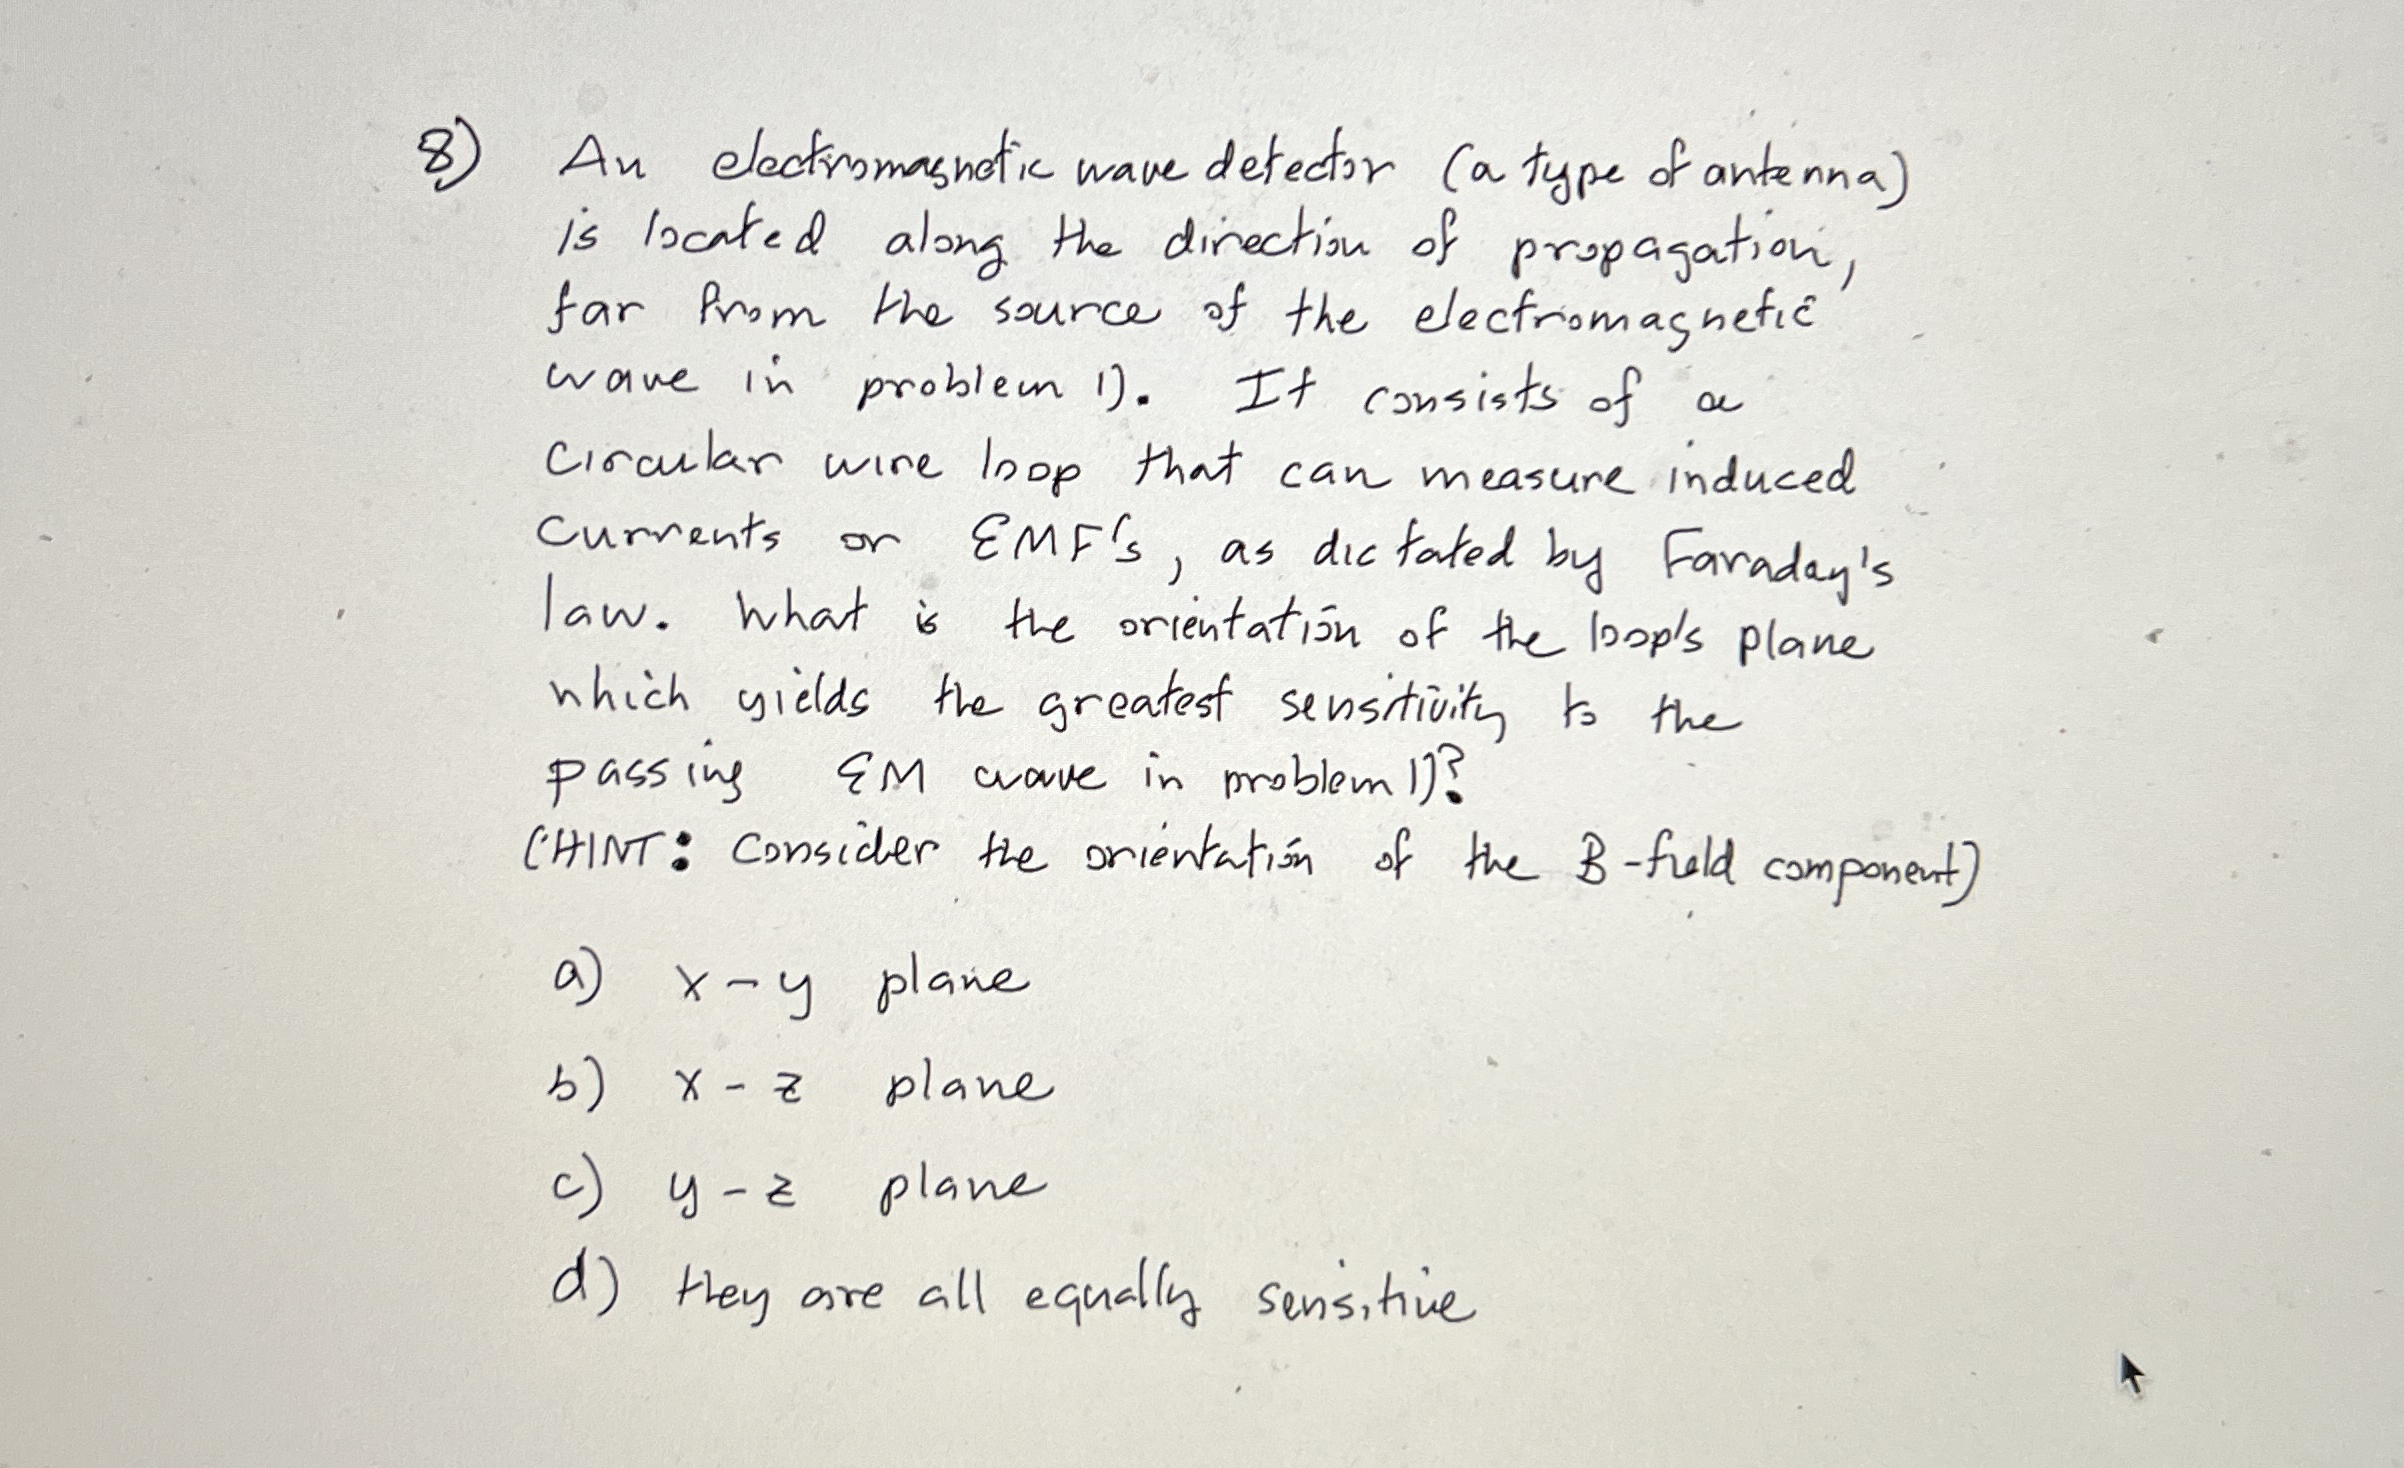 8) An electromagnetic wave detector (a type of antenna)
is located along the direction of propagation,
far from the source of the electromagnetic
wave in problem 1). It consists of a
circular wire loop that can measure induced
currents or EMF's, as dictated by Faraday's
law. What is the orientation of the loop's plane
which yields the greatest sensitivity to the
passing EM wave in problem 1)?
(HINT: Consider the orientation of the B-field component)
a) x-y plane
b) x-z plane
c) y-z plane
d) they are all equally sensitive